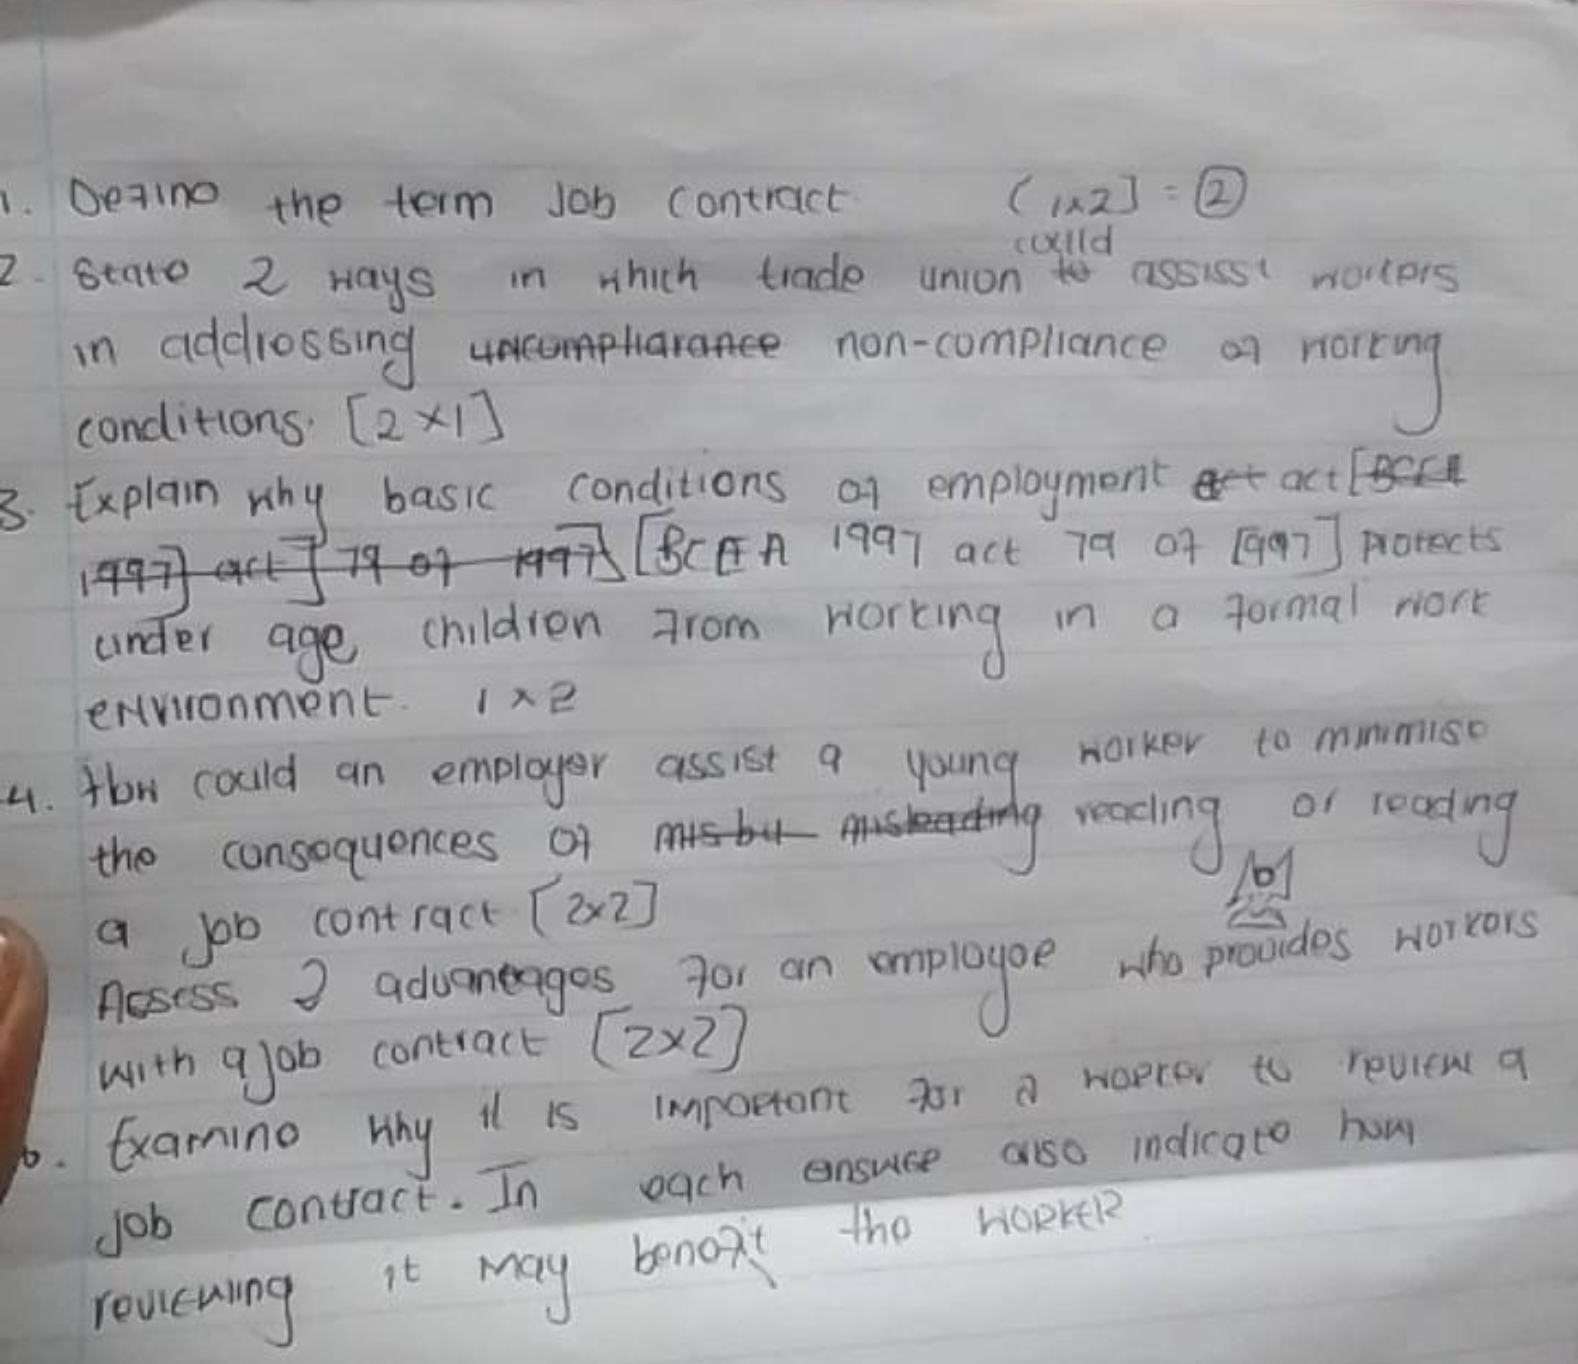 1. Define the term Job contract (1x2] = ②
2. State 2 ways in which trade union to could assisst workers
in addressing uncompliarance non-compliance of working
conditions. [2x1]
3. Explain why basic conditions of employment act act [BCEA
1997] act] 79 of 1997] [BCEA 1997 act 79 of 1997] protects
under age children from working in a formal work
environment. 1x2
4. How could an employer assist a young worker to minimise
the consequences of mis by misleading reading or reading
a job contract [2x2] [6]
Assess 2 advantages for an employee who provides workers
with a job contract [2x2]
6. Examine why it is important for a worker to review a
job contract. In each answer also indicate how
reviewing it may benefit the worker